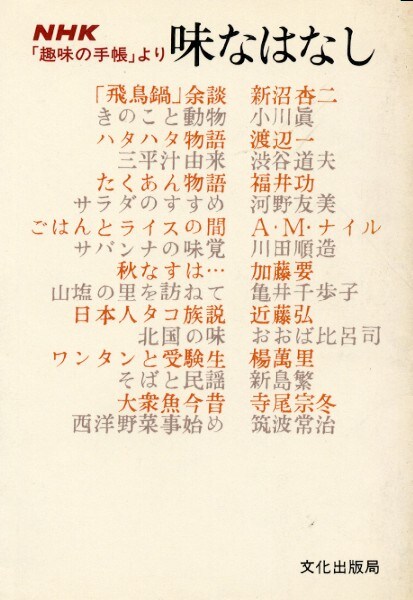 NHK
「趣味の手帳」より 味なはなし
「飛鳥鍋」余談 新沼杏二
きのこと動物 小川眞
ハタハタ物語 渡辺一
三平汁由来 渋谷道夫
たくあん物語 福井功
サラダのすすめ 河野友美
ごはんとライスの間 A・M・ナイル
サバンナの味覚 川田順造
秋なすは… 加藤要
山塩の里を訪ねて 亀井千歩子
日本人タコ族説 近藤弘
北国の味 おおば比呂司
ワンタンと受験生 楊萬里
そばと民謡 新島繁
大衆魚今昔 寺尾宗冬
西洋野菜事始め 筑波常治
文化出版局